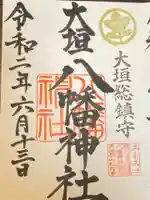 大垣総鎮守
大垣八幡神社
令和二年六月十三日